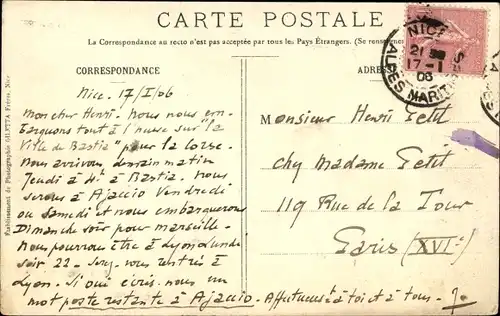 CARTE POSTALE
La Correspondance au recto n'est pas acceptée par tous les Pays Étrangers. (Se renseigner
CORRESPONDANCE
Nice. 17/I/06
Mon cher Henri. Nous nous em-
barquons tout à l'heure sur "la
Ville de Bastia" pour la Corse.
Nous arrivons demain matin
Jeudi à 4h à Bastia. Nous
serons à Ajaccio Vendredi
ou samedi et nous embarquerons
Dimanche soir pour Marseille.
Nous pourrons être à Lyon lundi
soir 22 - Serez-vous rentrés à
Lyon. Si oui écris-nous un
mot poste restante à Ajaccio. Affectueust à toi et à tous.
ADRES
Monsieur Henri Petit
chez Madame Petit
119 Rue de la Tour
Paris (XVIe)
NICE
21
17-1
06
ALPES MARIT
Etablissement de Photographie GILETTA Frères, Nice